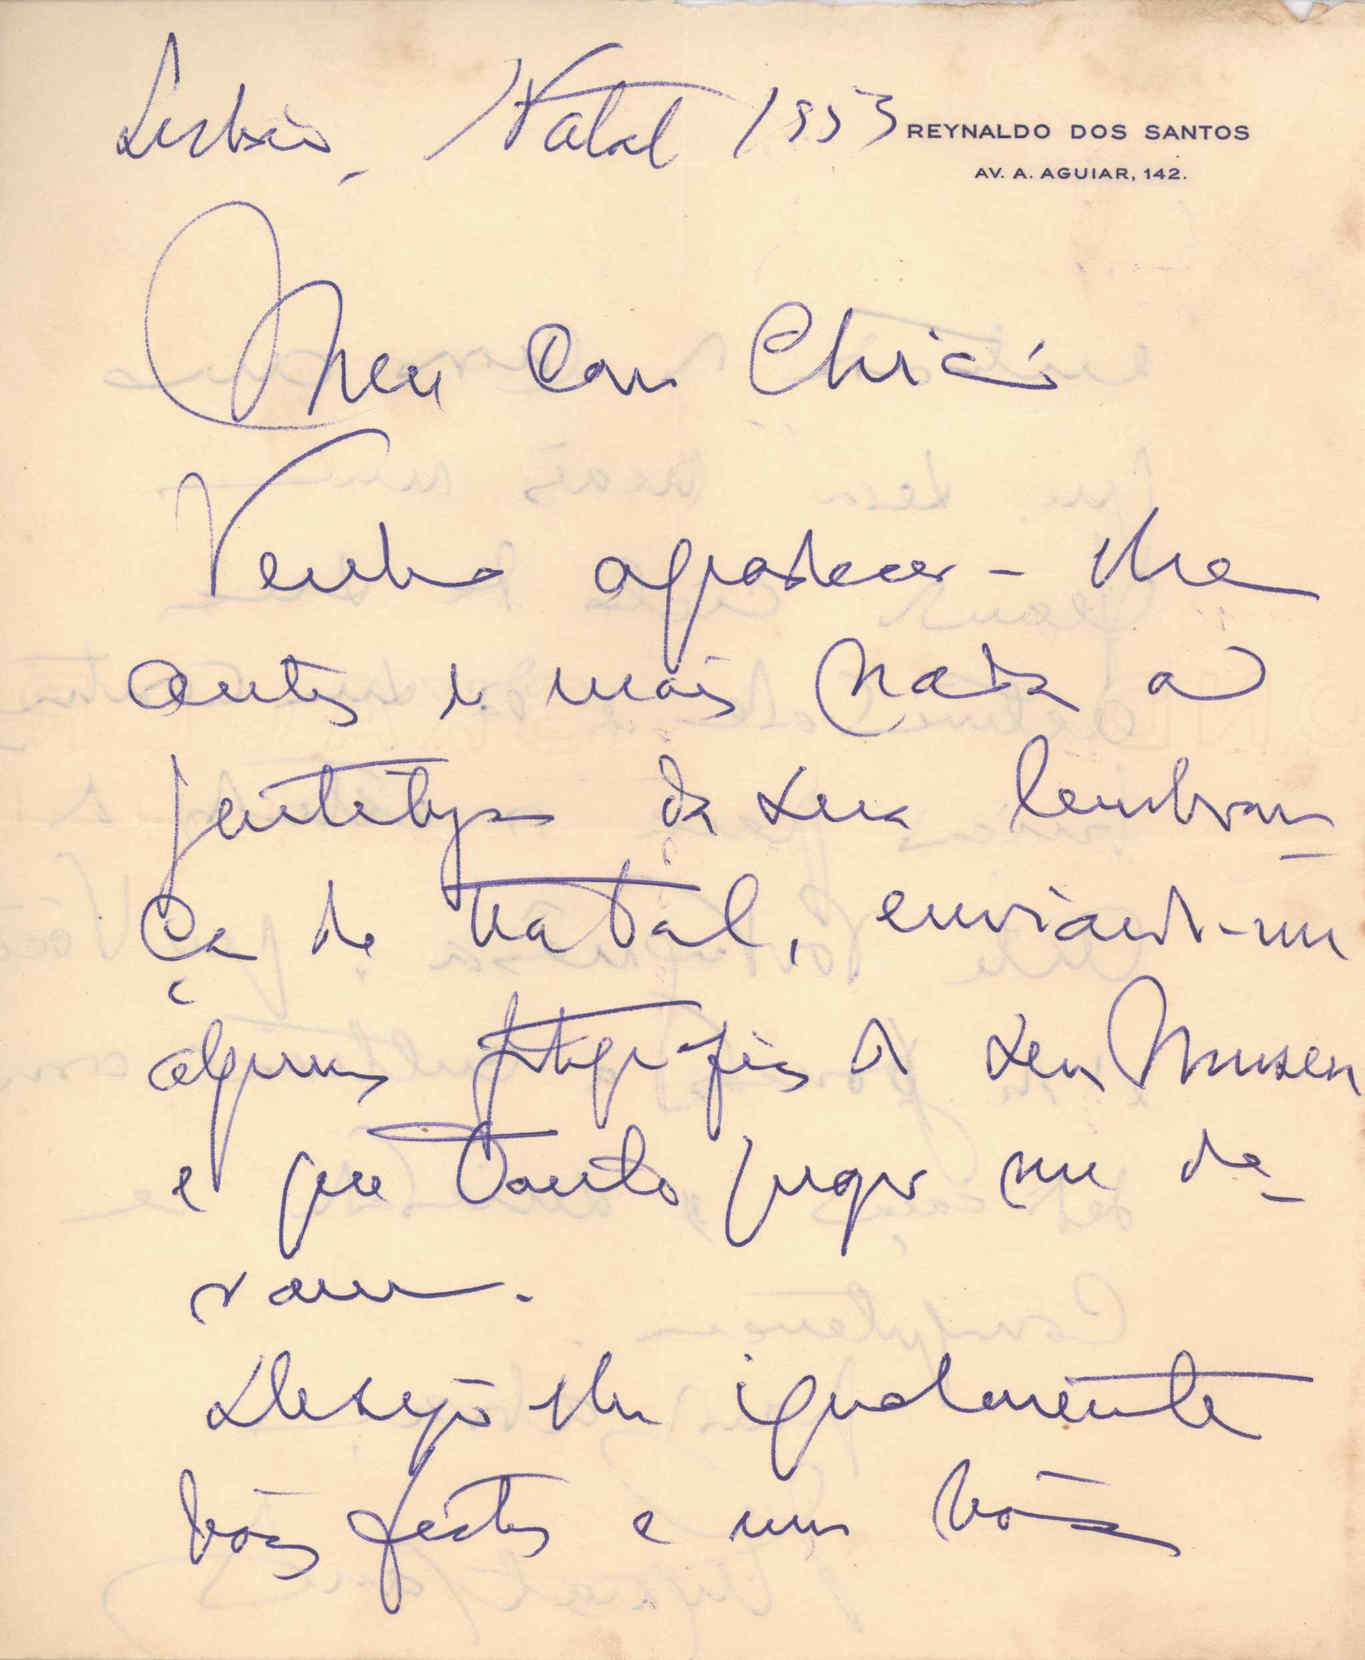 Lisbôa, Natal 1953
REYNALDO DOS SANTOS
AV. A. AGUIAR, 142.
Meu Caro Chicó
Venho agradecer-lhe
antes de mais nada a
gentileza da sua lembran-
ça de Natal, enviando-me
algumas fotografias do seu Museu
e que tanto prazer me de-
ram.
Desejo lhe igualmente
bôas festas e um bôm